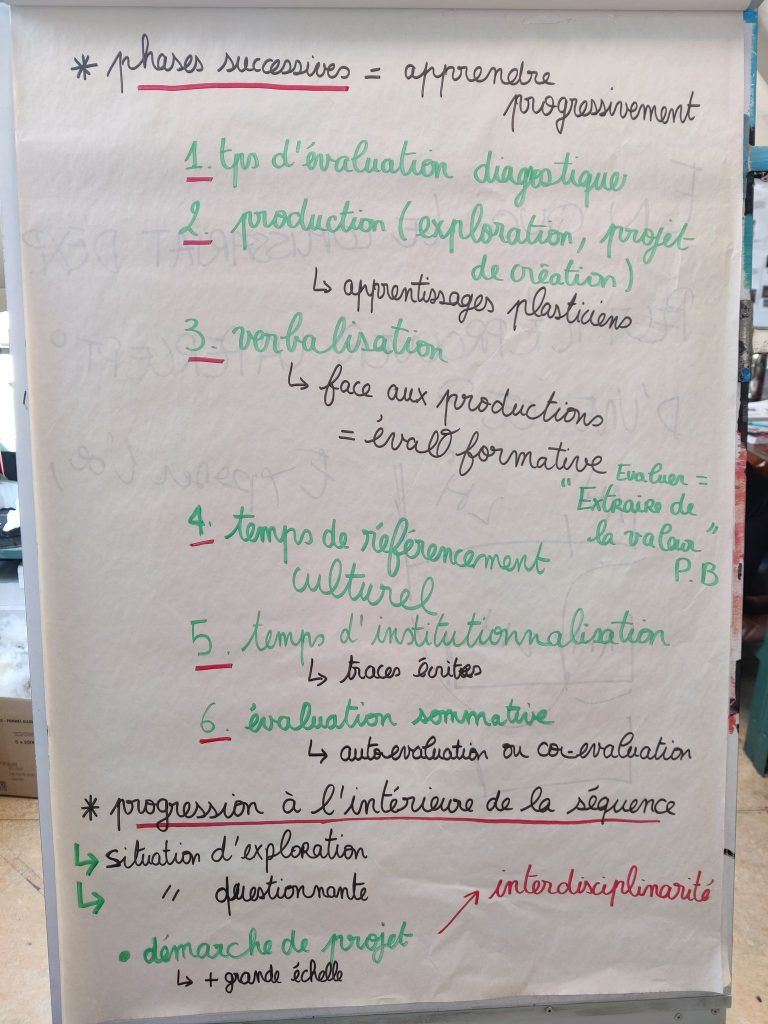 * phases successives = apprendre
progressivement
1. tps d'évaluation diagnostique
2. production (exploration, projet
de création)
↳ apprentissages plasticiens
3. verbalisation
↳ face aux productions
= éval° formative
Evaluer =
"Extraire de
la valeur"
P.B
4. temps de référencement
culturel
5. temps d'institutionnalisation
↳ traces écrites
6. évaluation sommative
↳ auto-evaluation ou co-evaluation
* progression à l'intérieure de la séquence
↳ situation d'exploration
↳ " questionnante
interdisciplinarité
• démarche de projet
↳ + grande échelle